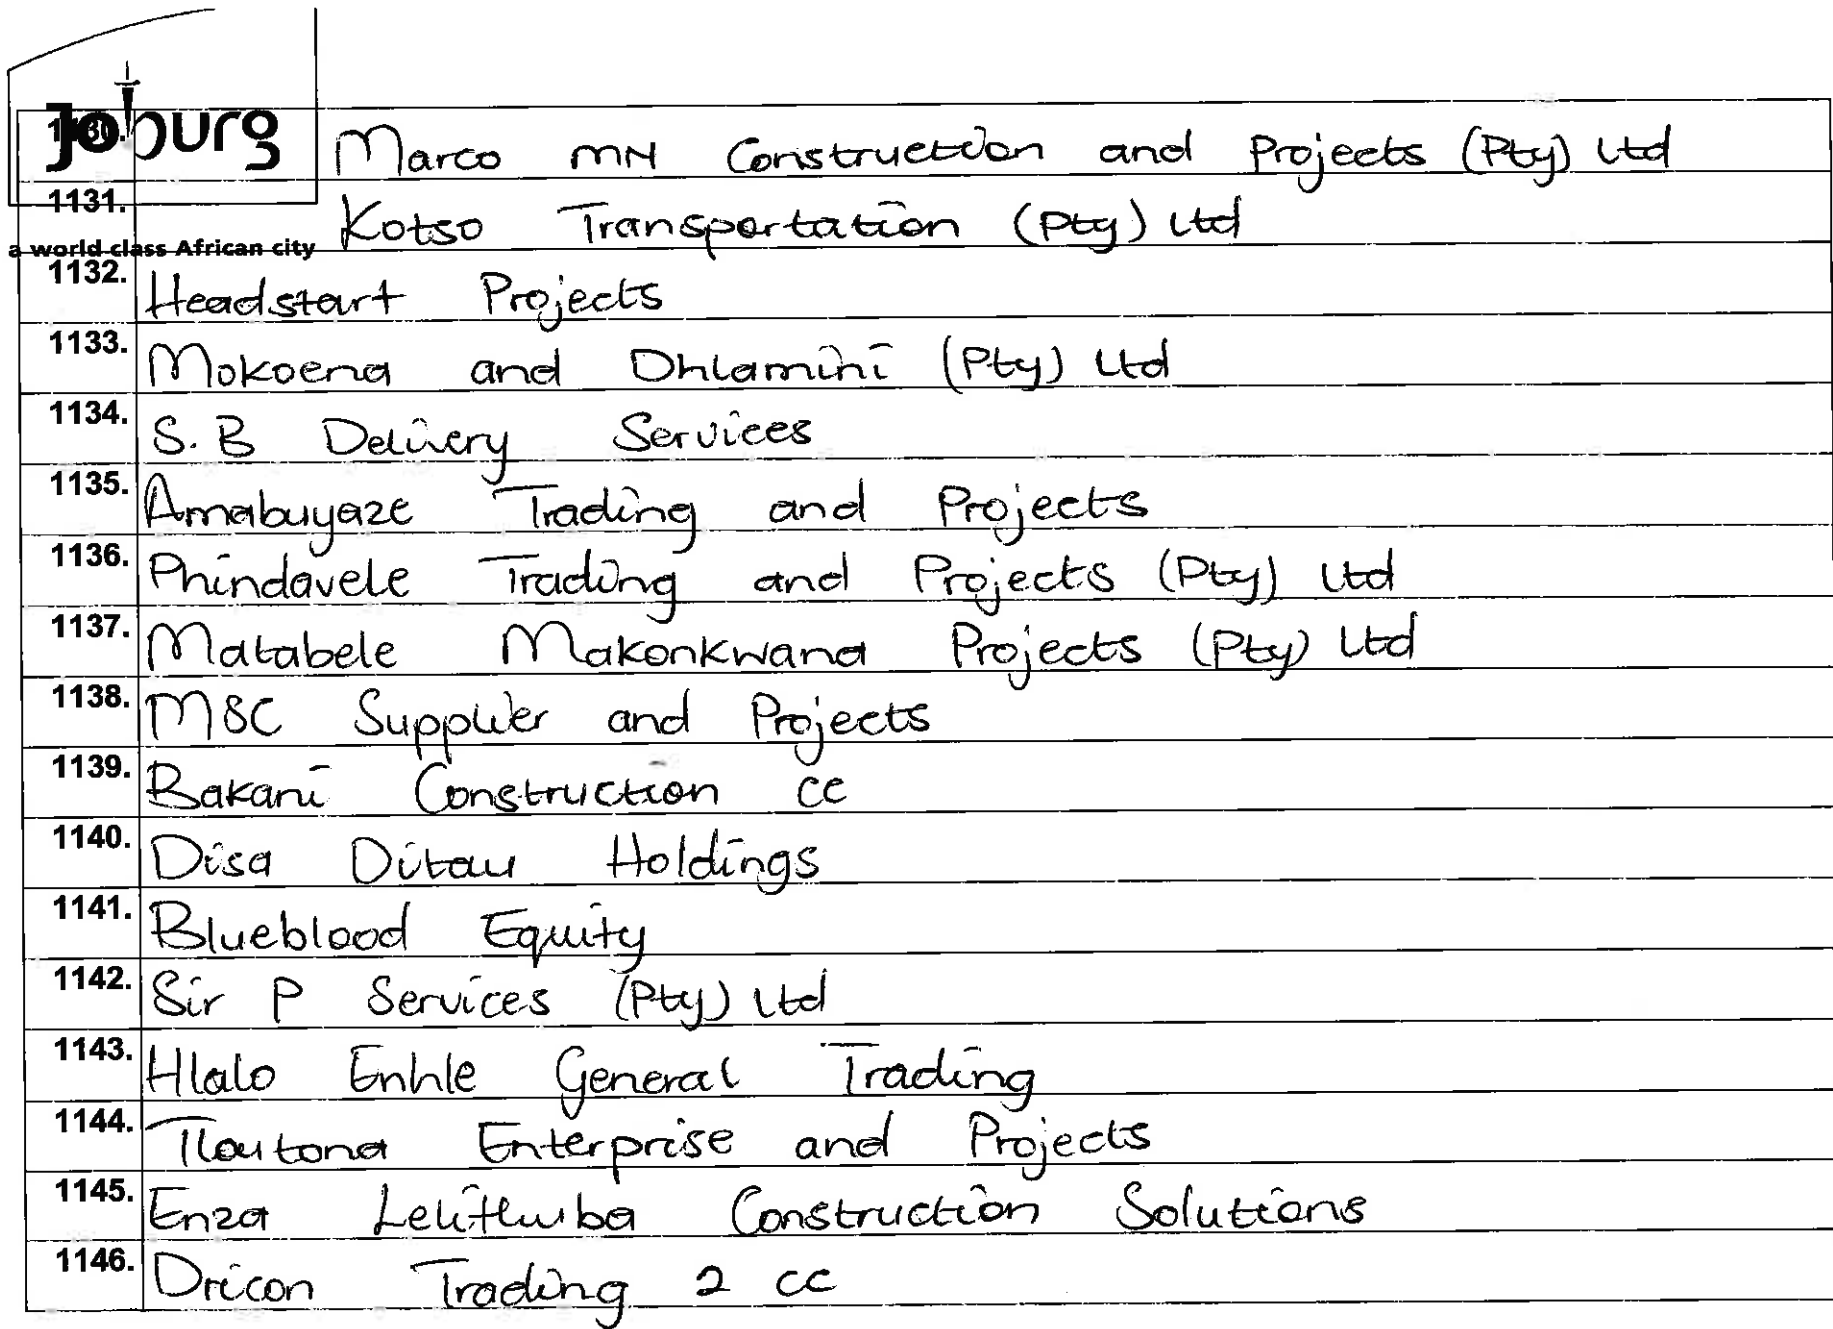 Joburg
a world class African city
1130. Marco MN Construction and Projects (Pty) Ltd
1131. Kotso Transportation (Pty) Ltd
1132. Headstart Projects
1133. Mokoena and Dhlamini (Pty) Ltd
1134. S.B Delivery Services
1135. Amabuyaze Trading and Projects
1136. Phindavele Trading and Projects (Pty) Ltd
1137. Matabele Makonkwana Projects (Pty) Ltd
1138. MSC Supplier and Projects
1139. Bakani Construction cc
1140. Disa Ditau Holdings
1141. Blueblood Equity
1142. Sir P Services (Pty) Ltd
1143. Hlalo Enhle General Trading
1144. Tlautona Enterprise and Projects
1145. Enza Lelithuba Construction Solutions
1146. Dricon Trading 2 cc